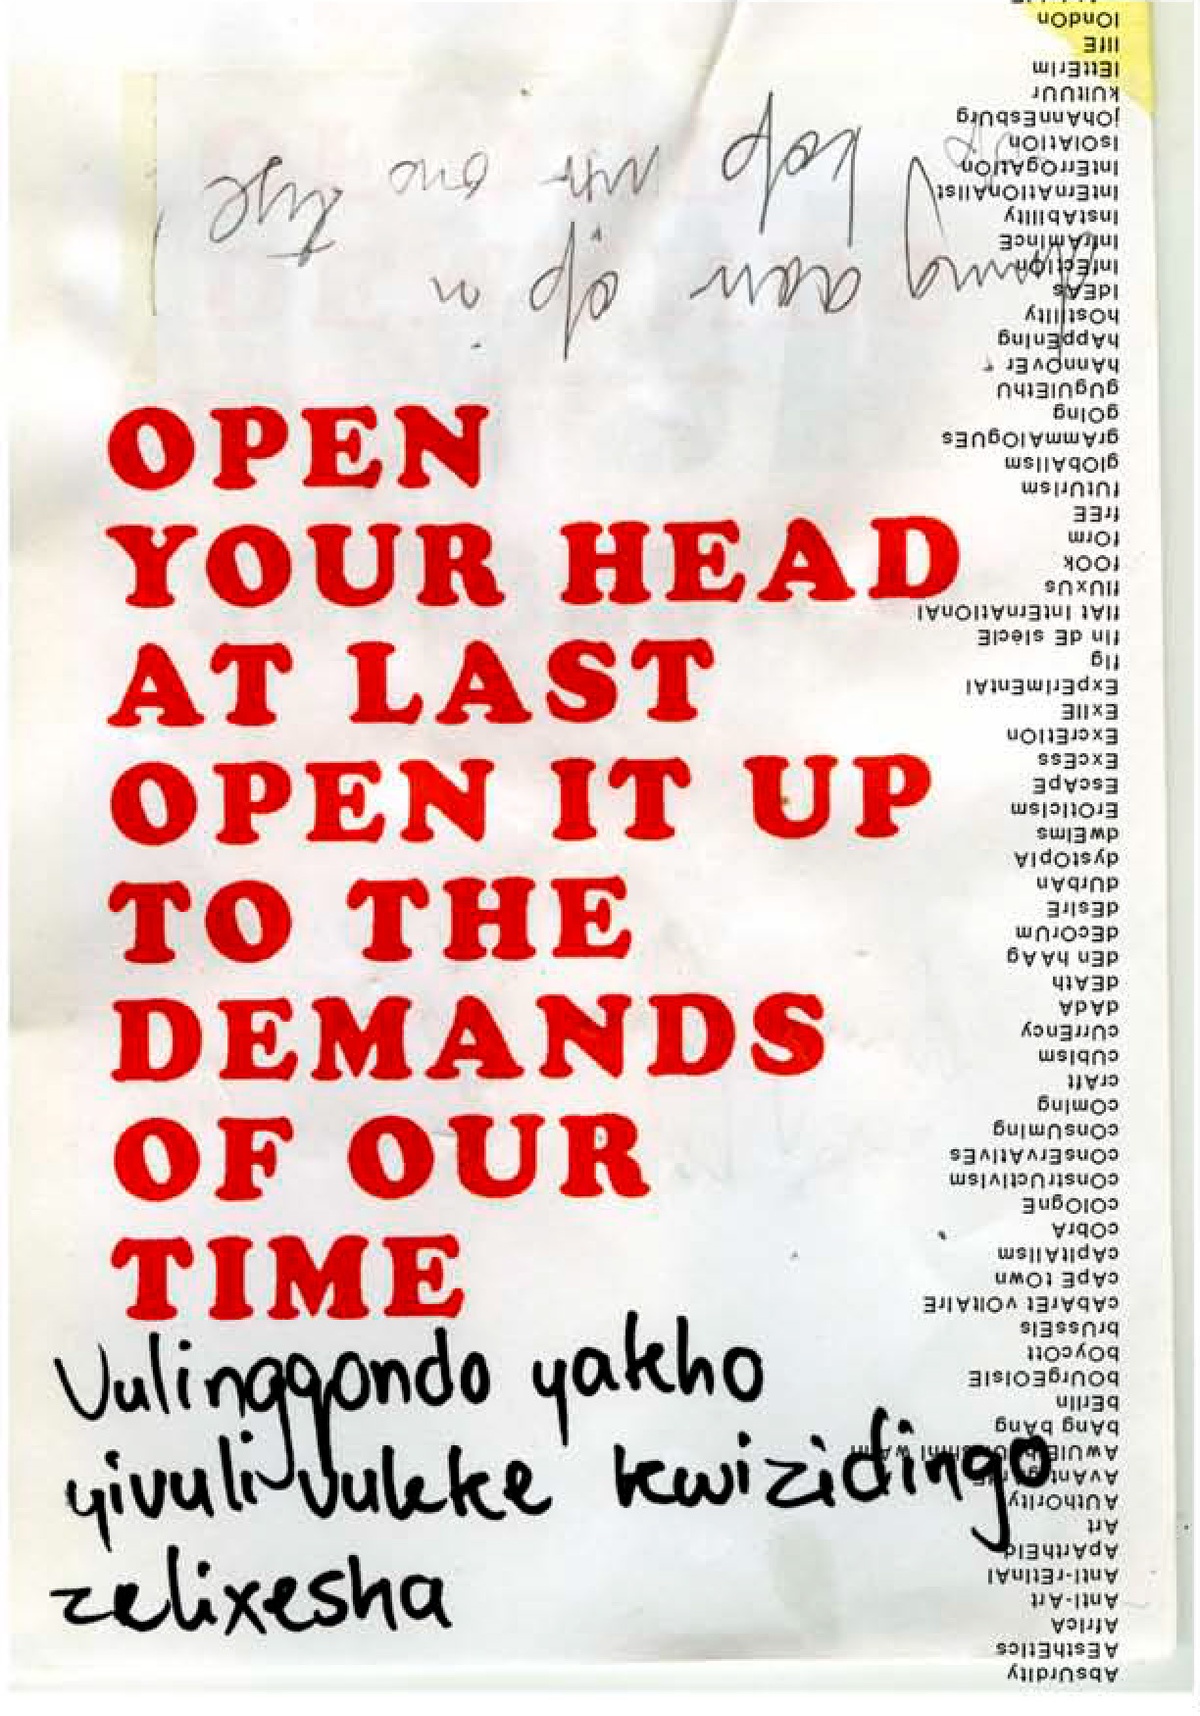 OPEN
YOUR HEAD
AT LAST
OPEN IT UP
TO THE
DEMANDS
OF OUR
TIME
Vulingqondo yakho
yivulivuleke kwizidingo
zelixesha
AbsUrdIty
AEsthEtIcs
AfrIcA
AntI-Art
AntI-rEtInAl
ApArthEId
Art
AUthOrIty
bAng bAng
bErlIn
bOUrgEOIsIE
bOycOtt
brUssEls
cAbArEt vOltAIrE
cApE tOwn
cApItAlIsm
cObrA
cOlOgnE
cOnstrUctIvIsm
cOnsErvAtIvEs
cOnsUmIng
cOmIng
crAft
cUbIsm
cUrrEncy
dAdA
dEAth
dEn hAAg
dEcOrUm
dEsIrE
dUrbAn
dystOpIA
dwElms
ErOtIcIsm
EscApE
ExcEss
ExcrEtIOn
ExIlE
ExpErImEntAl
fIg
fIn dE sIèclE
flAt IntErnAtIOnAl
flUxUs
fOOk
fOrm
frEE
fUtUrIsm
glObAlIsm
grAmmAlOgUEs
gOIng
gUgUlEthU
hAnnOvEr
hAppEnIng
hOstIlIty
IdEAs
InfEctIOn
IntrAmIncE
InstAbIlIty
IntErnAtIOnAlIst
IntErrOgAtIOn
IsOlAtIOn
jOhAnnEsbUrg
kUltUUr
lEttErIm
lIfE
lOndOn
aan op 'n
kop vir ons tye